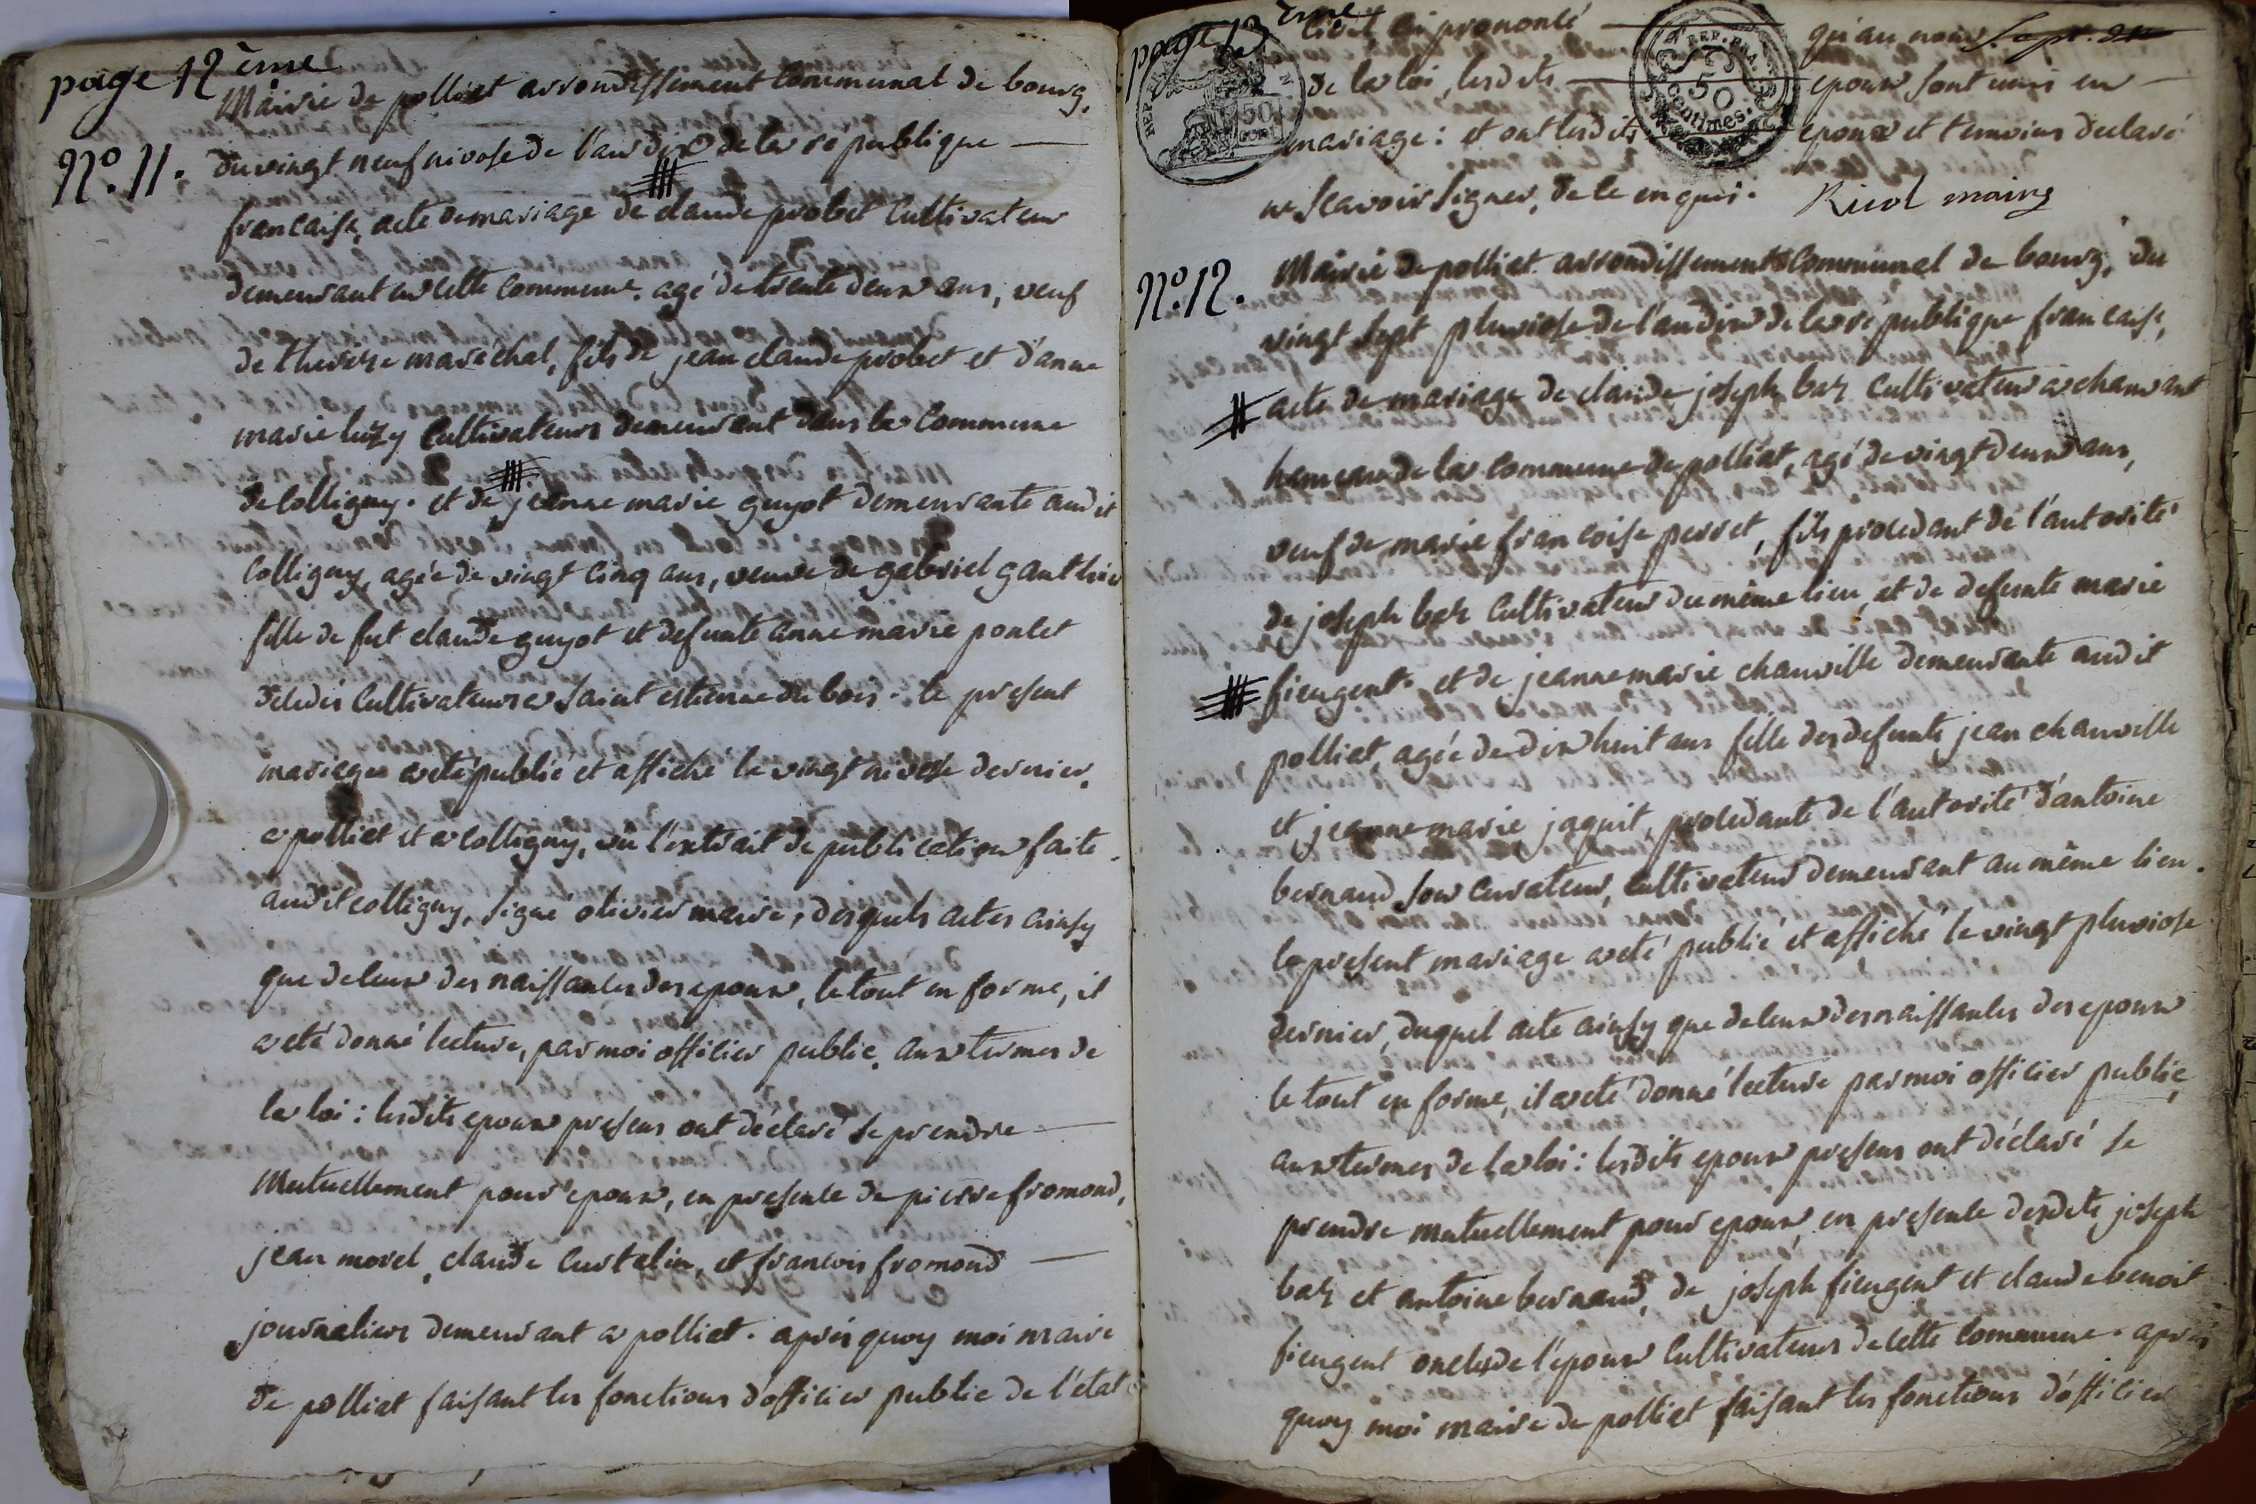 page 12ème
Mairie de polliat arrondissement Communal de bourg,
N.º 11. du vingt neuf nivose de l'an dix de la republique
francaise, acte de mariage de claude probet Cultivateur
demeurant en cette commune. agé de trente deux ans, veuf
de therese marechal, fils de jean claude probet et d'anne
marie luzy Cultivateurs demeurant dans la Commune
de Colligny. et de jeanne marie guyot demeurante audit
Colligny, agée de vingt cinq ans, veuve de gabriel gauthier
fille de fut claude guyot et defunte anne marie pontet
Cultivateurs a saint estienne du bois. le present
mariage a eté publié et affiché le vingt nivose dernier,
a polliat et a Colligny, vû l'extrait de publication faite
audit colligny, signé olivier maire, desquels actes ainsy
que de leux des naissances des epoux, le tout en forme, il
a eté donné lecture, par moi officier public, aux termes de
la loi : lesdits epoux presens ont déclaré se prendre
Mutuellement pour epoux, en presence de pierre fromond,
jean morel, claude Curtelin, et francois fromond
journaliers demeurant a polliat. après quoy moi maire
de polliat faisant les fonctions d'officier public de l'état
page 13ème
Civil ai prononcé qu'au nom
de la loi, lesdits epoux sont unis en
mariage : et ont lesdits epoux et temoins declaré
ne scavoir signer, de ce enquis. Ricol maire
REP. FRA.
50
centimes.
N.º 12. Mairie de polliat arrondissement Communal de bourg, du
vingt sept pluviose de l'an dix de la republique francaise,
acte de mariage de claude joseph baz Cultivateur a chanvant
hameau de la Commune de polliat, agé de vingt deux ans,
veuf de marie francoise perret, fils procedant de l'autorité
de joseph baz Cultivateur du même lieu, et de defunte marie
fieugent. et de jeanne marie chanville demeurante audit
polliat, agée de dix huit ans fille des defunts jean chanville
et jeanne marie jaquit, procedante de l'autorité d'antoine
bernaud son Curateur, Cultivateur demeurant au même lieu.
le present mariage a eté publié et affiché le vingt pluviose
dernier, duquel acte ainsy que de leux des naissances des epoux
le tout en forme, il a eté donné lecture par moi officier public,
aux termes de la loi : lesdits epoux presens ont déclaré se
prendre mutuellement pour epoux, en presence desdits joseph
baz et antoine bernaud, de joseph fieugent et claude benoit
fieugent oncles de l'epoux Cultivateurs de cette Commune. après
quoy moi maire de polliat faisant les fonctions d'officier